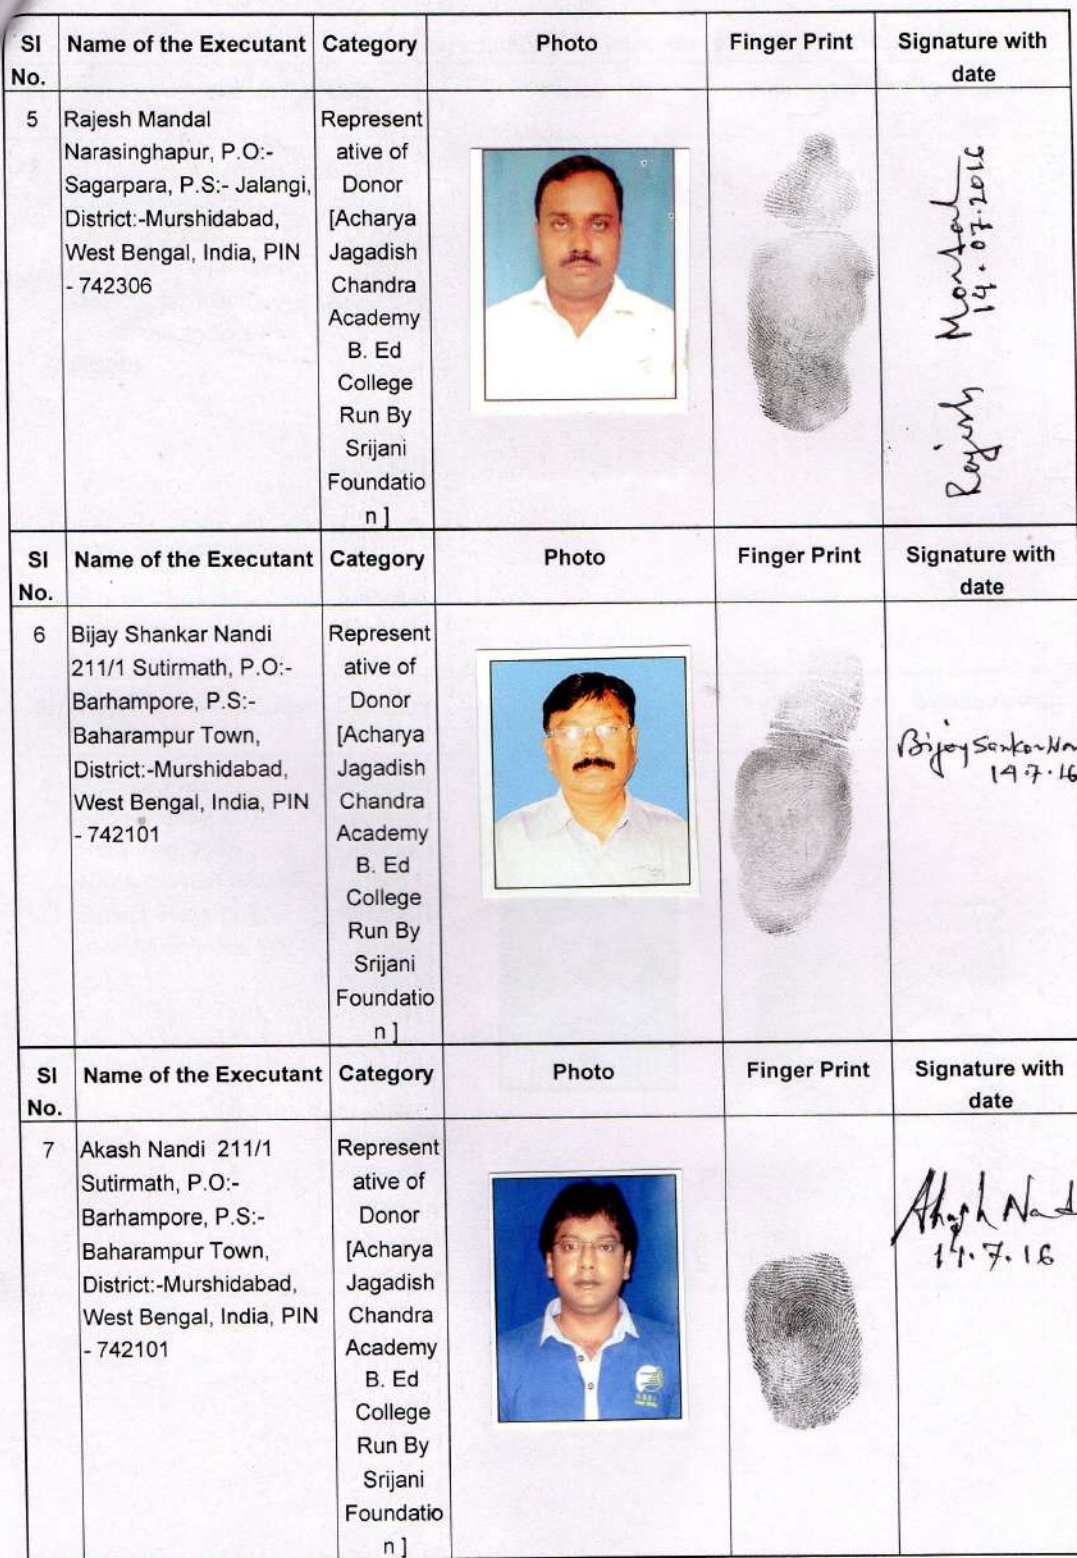 Sl No.
Name of the Executant
Category
Photo
Finger Print
Signature with date
5
Rajesh Mandal
Narasinghapur, P.O:-
Sagarpara, P.S:- Jalangi,
District:-Murshidabad,
West Bengal, India, PIN
- 742306
Represent
ative of
Donor
[Acharya
Jagadish
Chandra
Academy
B. Ed
College
Run By
Srijani
Foundatio
n ]
Rajesh Mondal
14.07.2016
Sl No.
Name of the Executant
Category
Photo
Finger Print
Signature with date
6
Bijay Shankar Nandi
211/1 Sutirmath, P.O:-
Barhampore, P.S:-
Baharampur Town,
District:-Murshidabad,
West Bengal, India, PIN
- 742101
Represent
ative of
Donor
[Acharya
Jagadish
Chandra
Academy
B. Ed
College
Run By
Srijani
Foundatio
n ]
Bijoy Sankar Nan
14.7.16
Sl No.
Name of the Executant
Category
Photo
Finger Print
Signature with date
7
Akash Nandi 211/1
Sutirmath, P.O:-
Barhampore, P.S:-
Baharampur Town,
District:-Murshidabad,
West Bengal, India, PIN
- 742101
Represent
ative of
Donor
[Acharya
Jagadish
Chandra
Academy
B. Ed
College
Run By
Srijani
Foundatio
n ]
Akash Nand
14.7.16